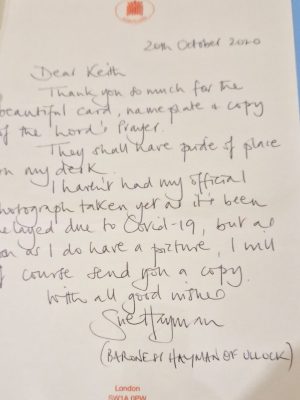 20th October 2020
Dear Keith
Thank you so much for the
beautiful card, nameplate & copy
of the Lord's Prayer.
They shall have pride of place
on my desk.
I haven't had my official
photograph taken yet as it's been
elayed due to Covid-19, but as
oon as I do have a picture, I will
f course send you a copy.
With all good wishes
Sue Hayman
(BARONESS HAYMAN OF ULLOCK)
London
SW1A 0PW